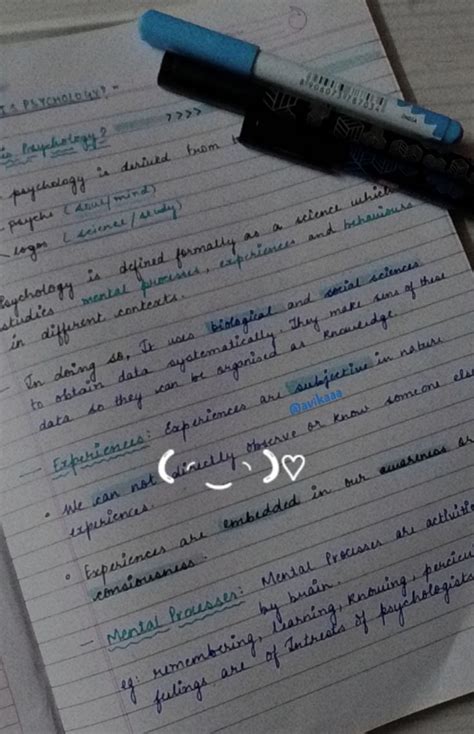 IS PSYCHOLOGY? -
is Psychology? >>>>
psychology is derived from
psycho (soul/mind)
logos (science/study)
Psychology is defined formally as a science which
studies mental processes, experiences and behaviours
in different contexts.
In doing so, It uses biological and social sciences
to obtain data systematically. They make sens of these
data so they can be organised as knowledge.
Experiences: Experiences are subjective in nature
@avikaaa
• We can not directly observe or know someone else
experiences.
• Experiences are embedded in our awareness or
consiousness.
Mental Processes: Mental Processes are activities
by brain.
eg: remembering, learning, knowing,
feelings are of Intrests of psychologists